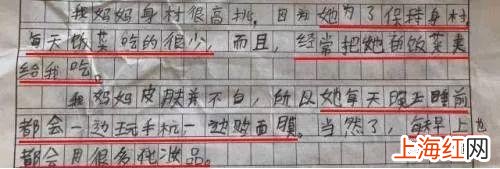 我妈妈身材很高挑。因为她为了保持身材
每天饭菜吃的很少，而且，经常把她的饭菜夹
给我吃。
我妈妈皮肤并不白，所以她每天晚上睡前
都会一边玩手机，一边敷面膜。当然了，每天早上也
都会用很多化妆品。
上海红网